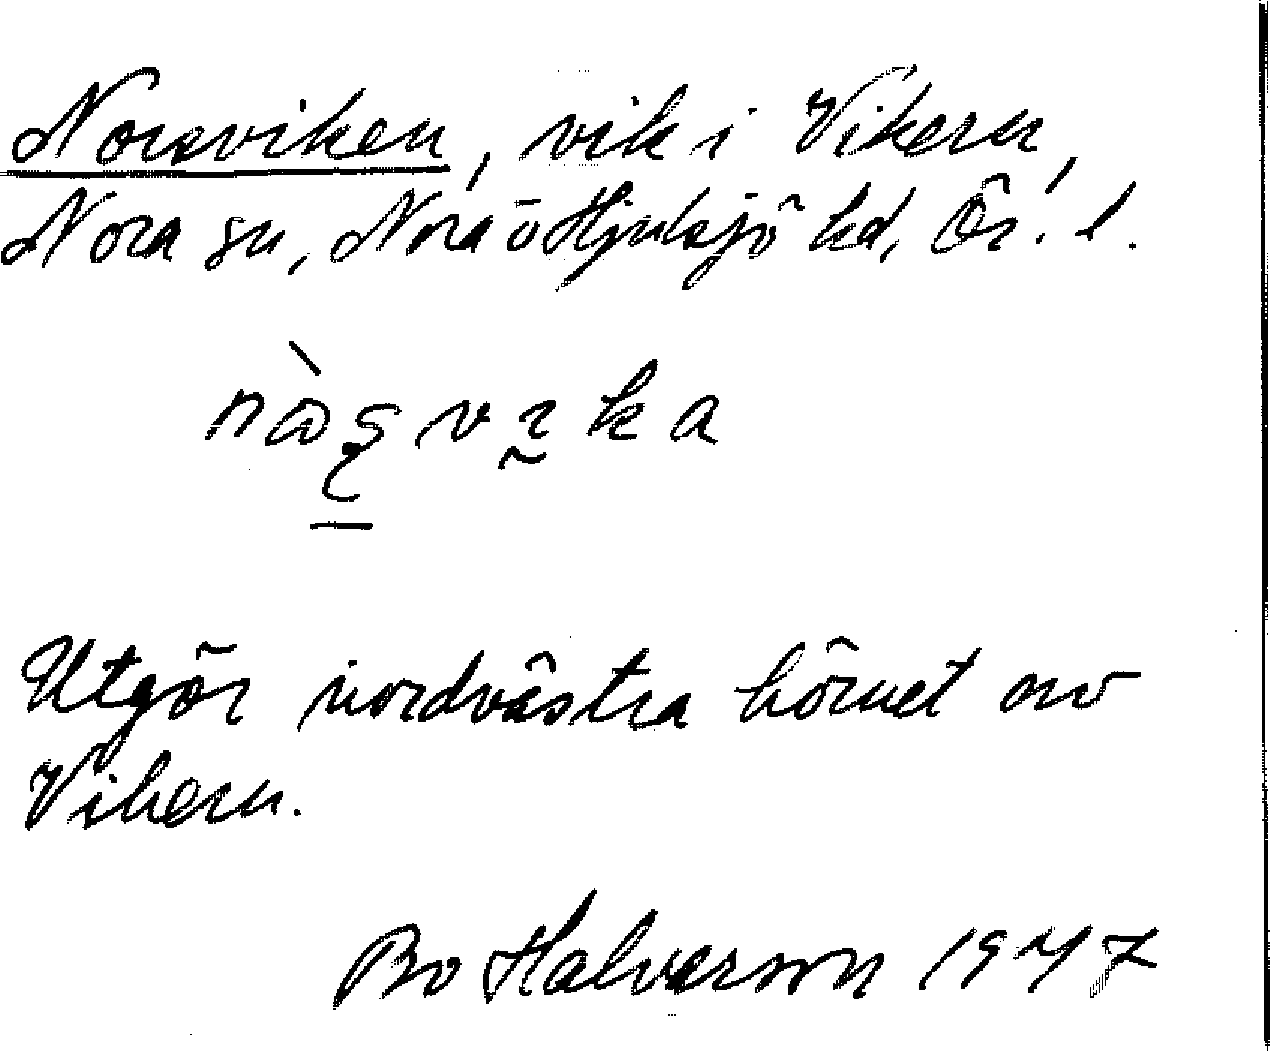 Norsviken, vik i Vikern,
Nora sn, Nora o Hjulsjö hd, Ör. l.
Utgör nordvästra hörnet av
Vikern.
Bo Halverson 1947